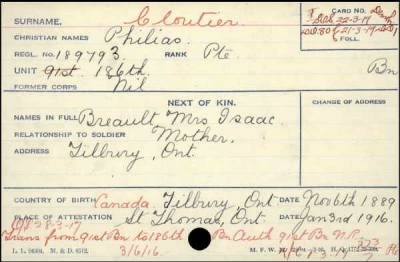 SURNAME, Cloutier. CARD NO.
CHRISTIAN NAMES Philias. 22-3-17
REGL. NO. 189793. RANK Pte 21-3-17
FOLL.
UNIT 91st. 186th. Bn
FORMER CORPS Nil
NEXT OF KIN. CHANGE OF ADDRESS
NAMES IN FULL Breault Mrs Isaac.
RELATIONSHIP TO SOLDIER Mother.
ADDRESS Tilbury, Ont.
COUNTRY OF BIRTH Canada. Tilbury, Ont DATE Nov 6th 1889
PLACE OF ATTESTATION St Thomas, Ont DATE Jan 3rd 1916.
28-3-17
Trans from 91st Bn to 186th Bn Auth 91st Bn N.R.
3/6/16.
M. F. W.